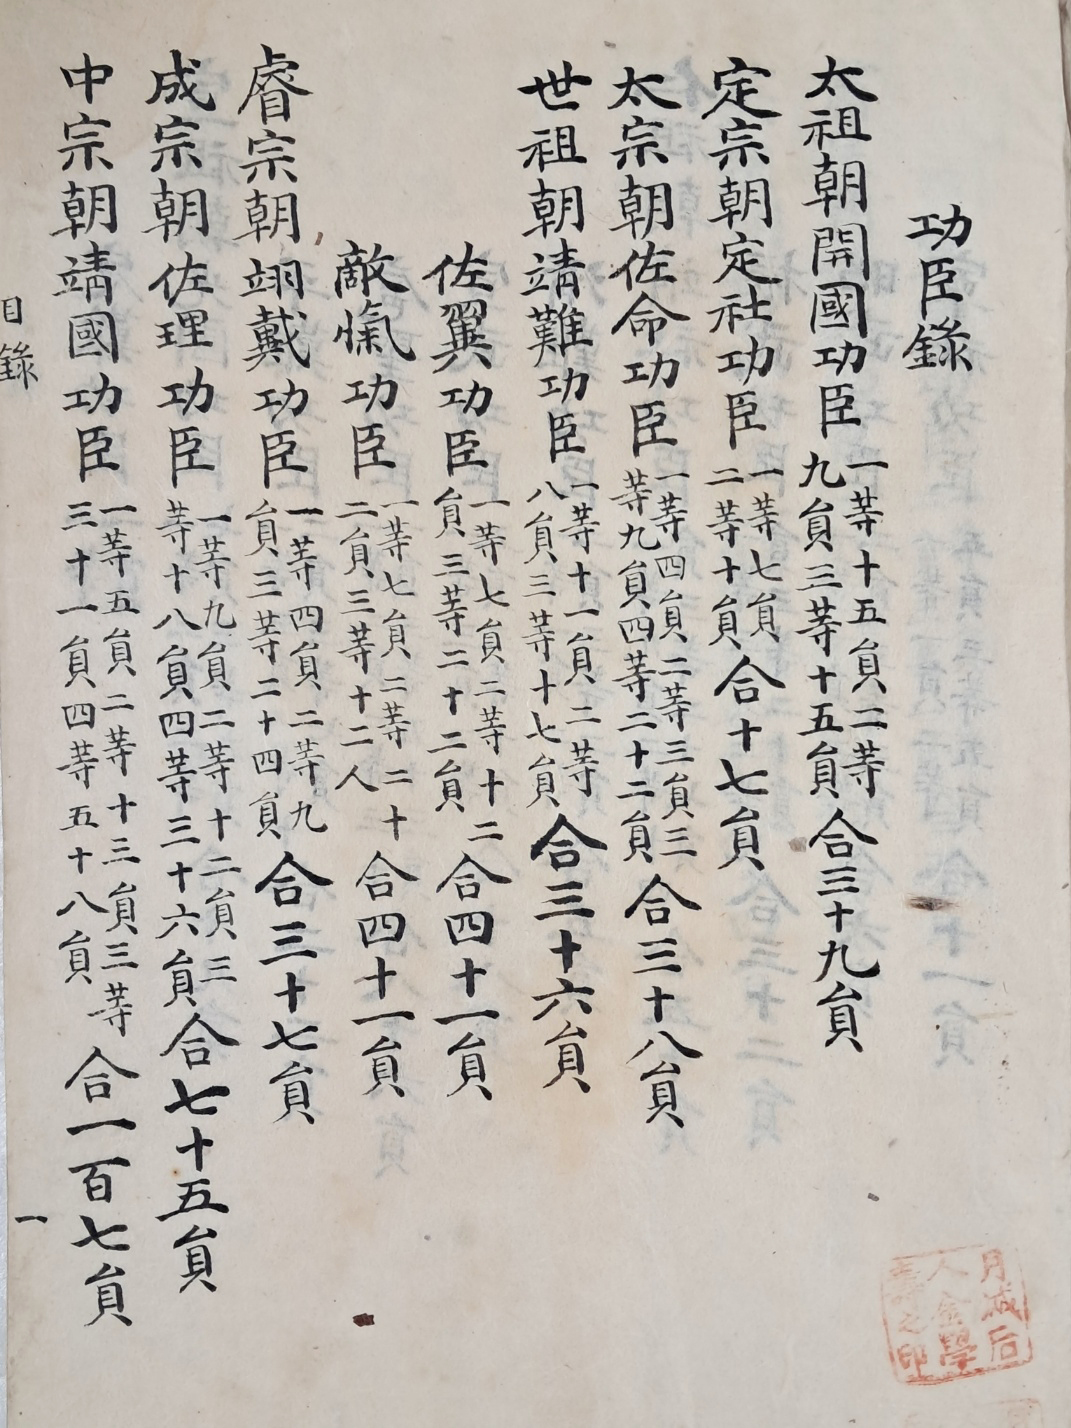 功臣錄
太祖朝開國功臣一等十五員二等九員三等十五員合三十九員
定宗朝定社功臣一等七員二等十員合十七員
太宗朝佐命功臣一等四員二等三員三等九員四等二十二員合三十八員
世祖朝靖難功臣一等十一員二等八員三等十七員合三十六員
佐翼功臣一等七員二等十二員三等二十二員合四十一員
敵愾功臣一等七員二等二十二員三等十二人合四十一員
睿宗朝翊戴功臣一等四員二等九員三等二十四員合三十七員
成宗朝佐理功臣一等九員二等十二員三等十八員四等三十六員合七十五員
中宗朝靖國功臣一等五員二等十三員三等三十一員四等五十八員合一百七員
目錄
一